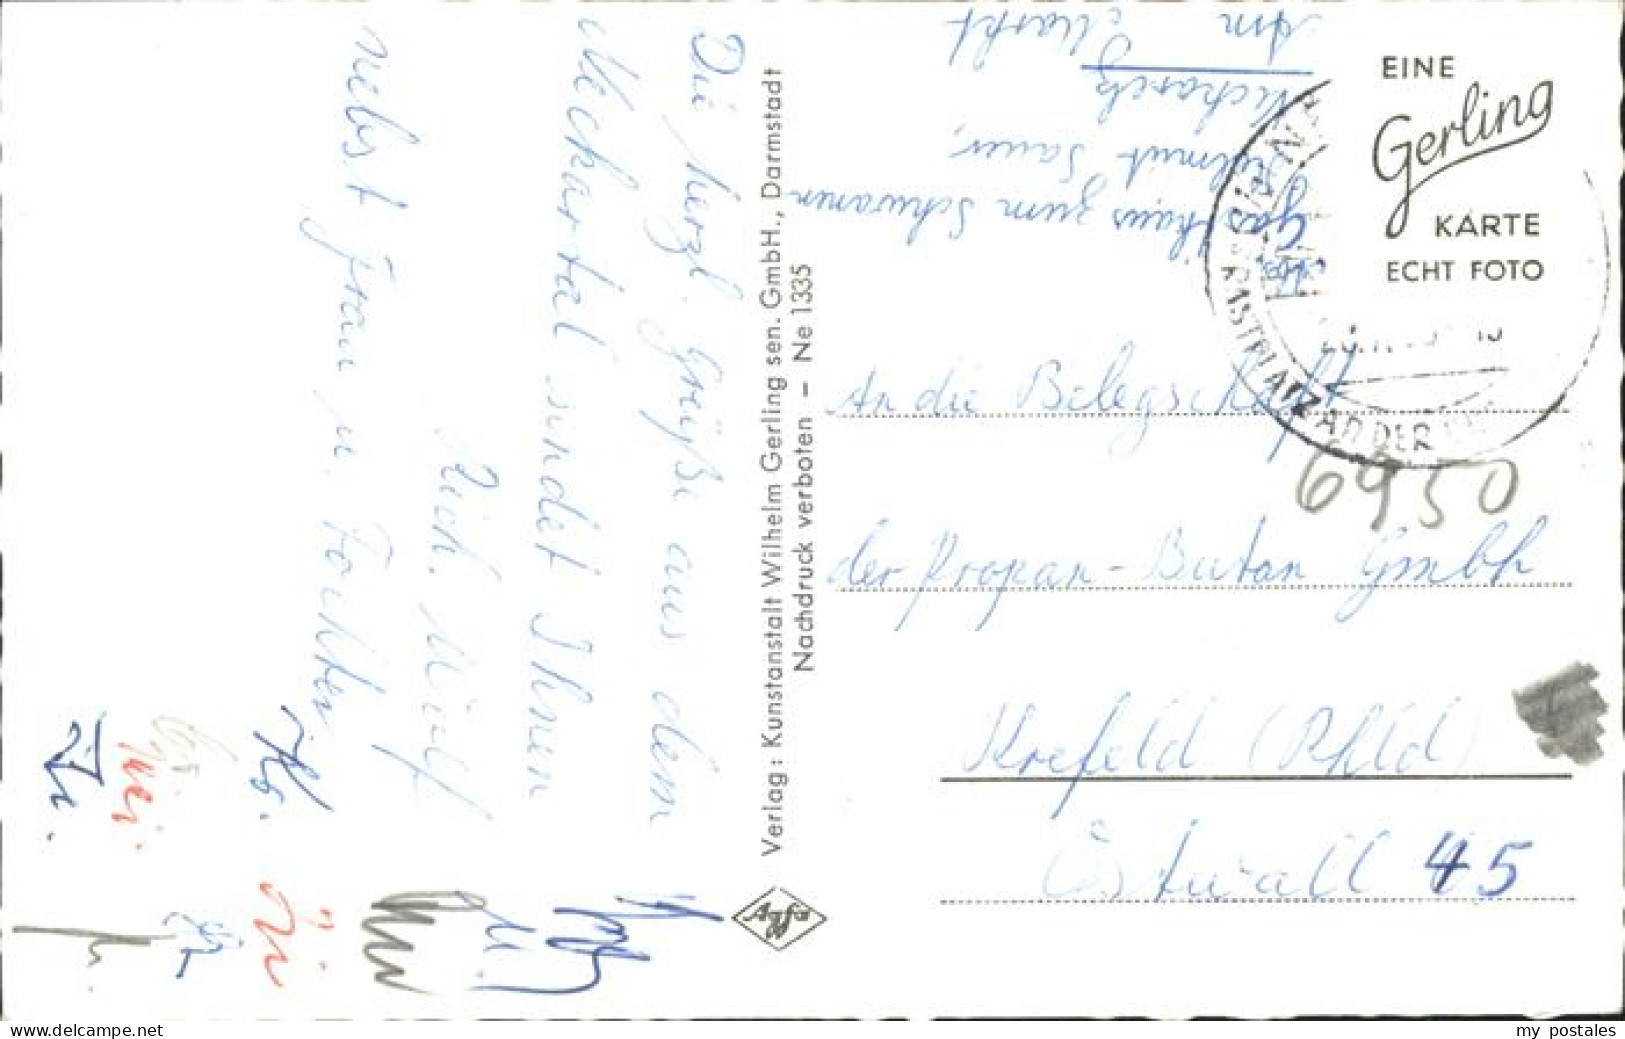 Die herzl. Grüße aus dem
Neckartal sendet Ihnen
Rich. Wolf
nebst Frau u. Tochter
Verlag: Kunstanstalt Wilhelm Gerling sen. GmbH., Darmstadt
Nachdruck verboten – Ne 1335
Agfa
Gasthaus zum Schwanen
Helmut Sauer,
Am Markt
EINE
Gerling
KARTE
ECHT FOTO
AN DER
An die Belegschaft
6950
der Propan-Butan Gmbh
Krefeld (Rhld)
Ostwall 45
oldthing.de
my postales